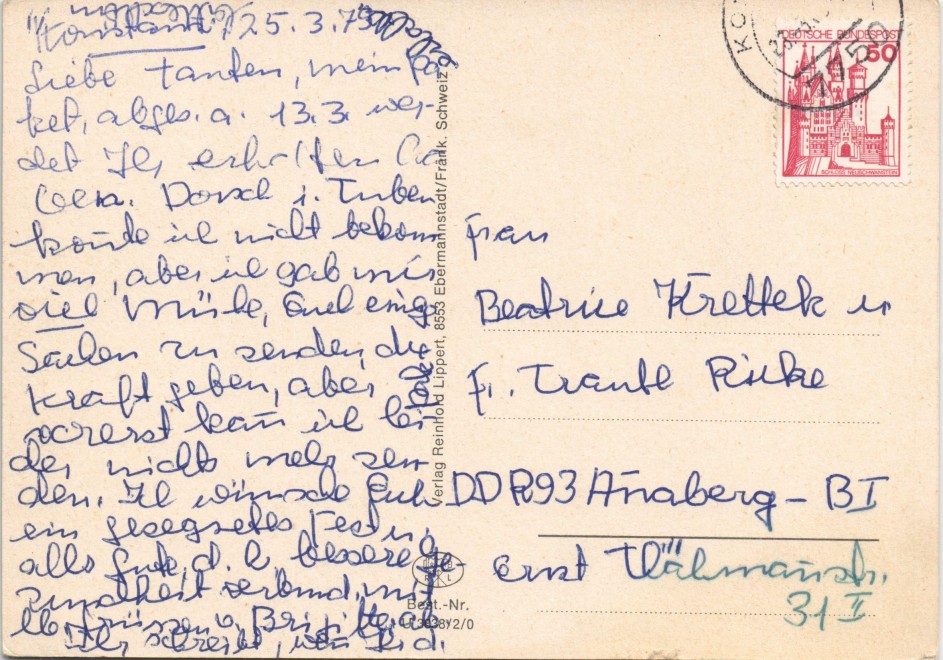 Konstanz, 25.3.7
Liebe Tanten, mein Pa-
ket, abges. a. 13.3. wer-
det Ihr erhalten
Dorsch i. Tuben
konnte ich nicht bekom-
men, aber ich gab mir
viel Mühe, Euch einige
Sachen zu senden, die
Kraft geben, aber
vorerst kann ich lei-
der nichts mehr sen-
den. Ich wünsche Euch
ein gesegnetes Fest u.
alles Gute, d. h. bessere Ge-
sundheit verbund. mit
lb. Grüssen v. Brigitte
Ihr schreibt, wenn
Verlag Reinhold Lippert, 8553 Ebermannstadt/Fränk. Schweiz
Best.-Nr.
DEUTSCHE BUNDESPOST
60
SCHLOSS NEUSCHWANSTEIN
7750
Frau
Beatrice Krettek u
Fr. Trautl Ricke
DDR 93 Annaberg - BI
Ernst
31 II